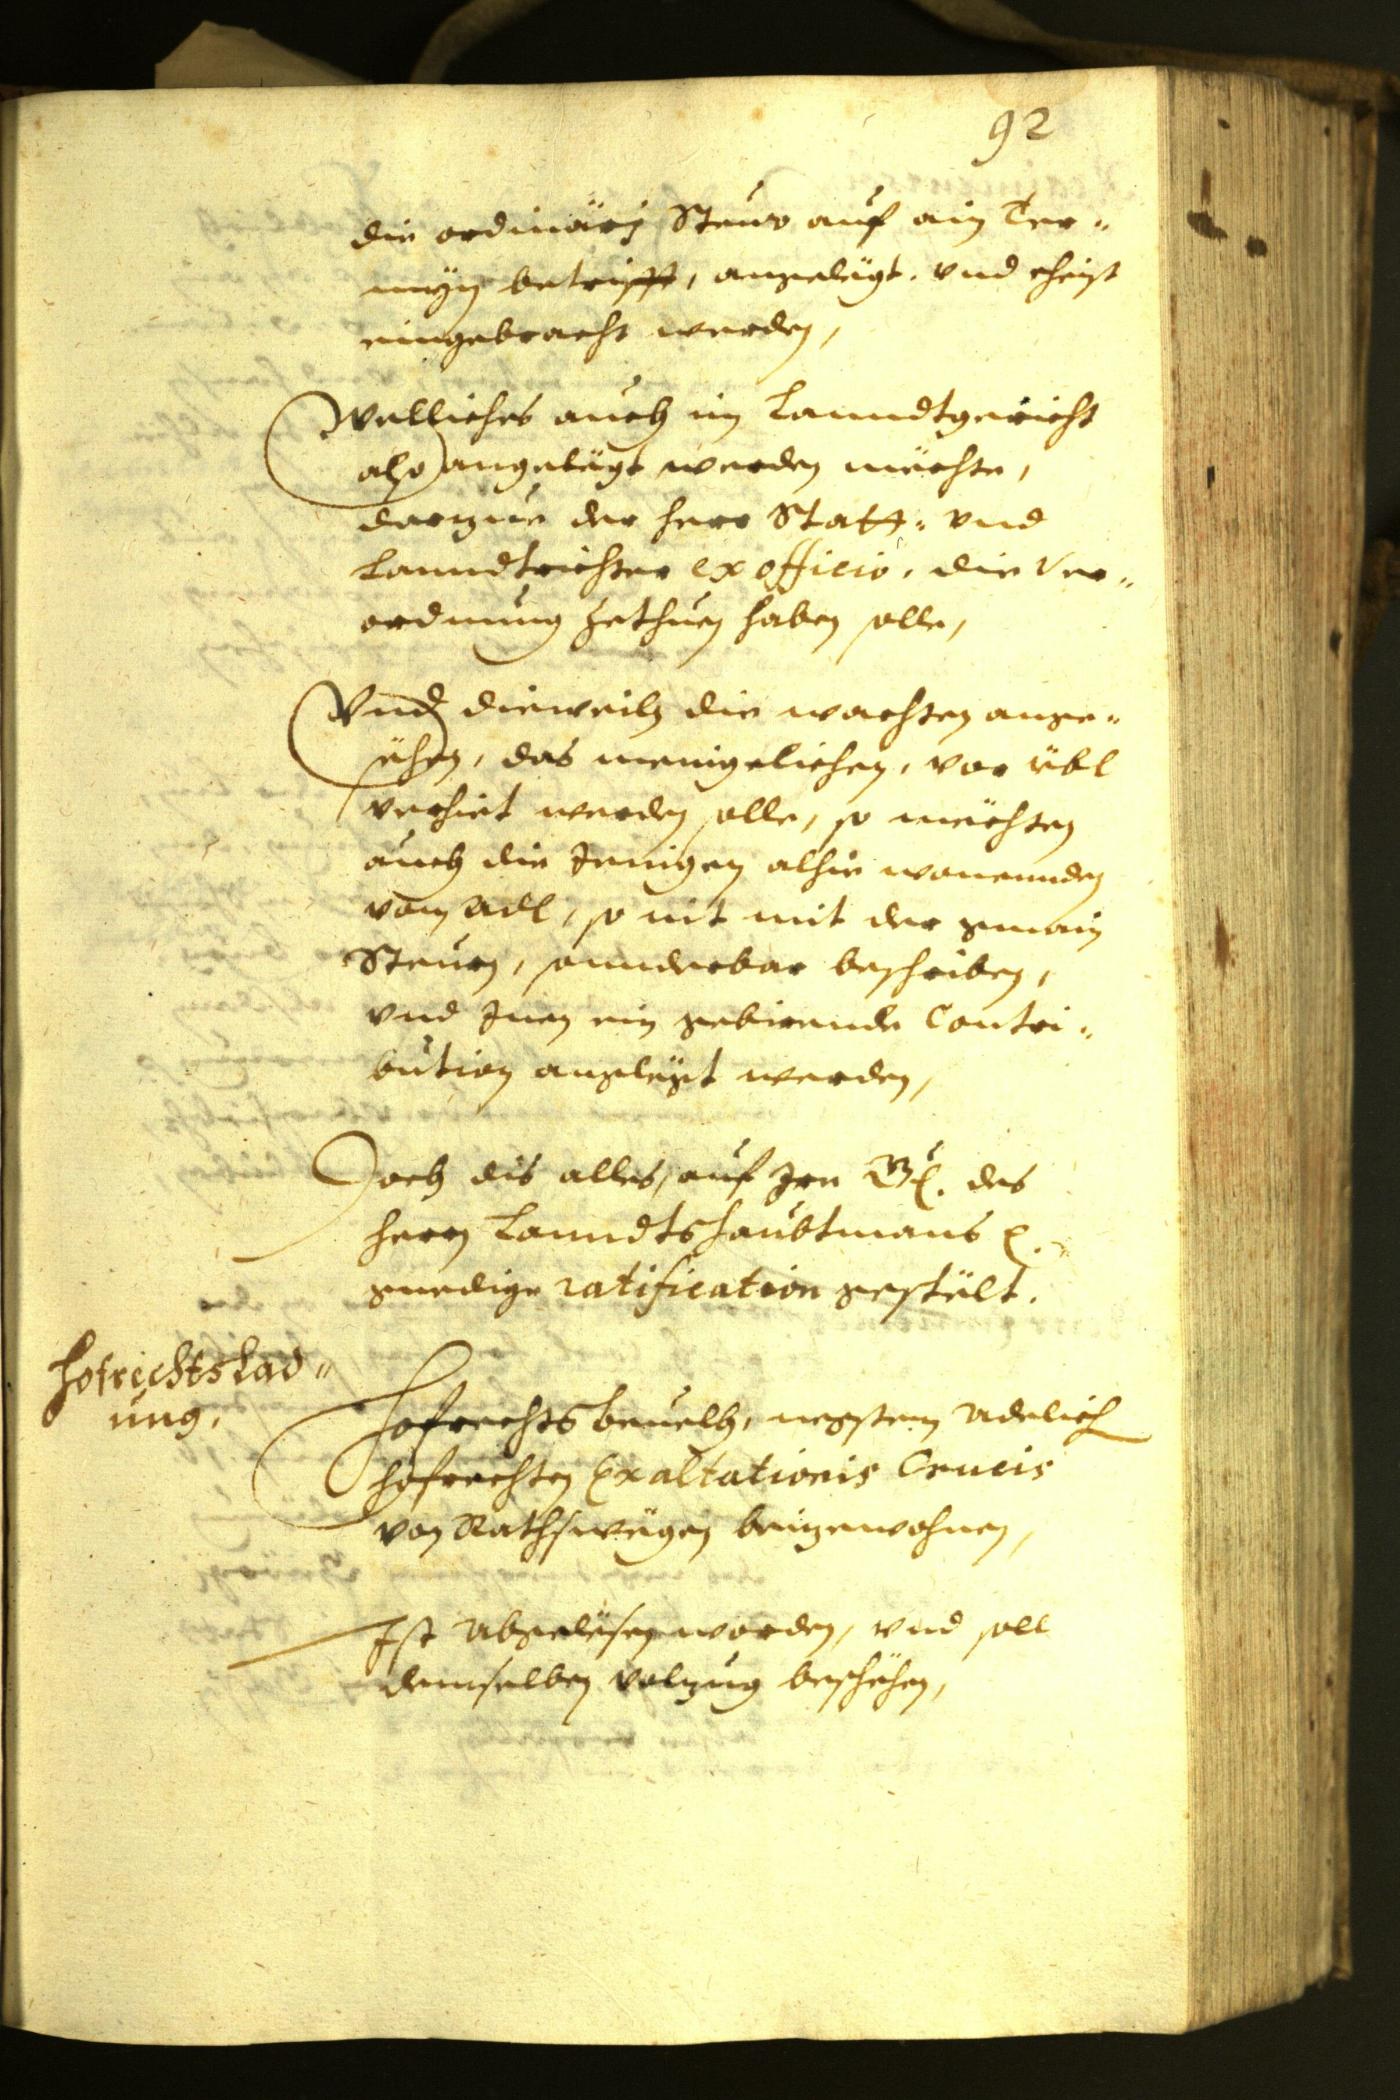 92
die ordinärj Steur auf ain Ter=
mijn betrifft, angelegt, vnd ehist
eingebracht werden,
Welliches auch im Lanndtgericht
also angelegt werden mechte,
darzue der herr Statt= vnd
Lanndtrichter ex officio, die Ver=
ordnung zethuen haben solle,
Vnd dieweiln die wachten ange=
sehen, das menigelichen, vor übl
verhiet werden solle, so mechten
auch die Jenigen alhie wonennden
vom Adl, so nit mit der gmain
Steurn, sonnderbar beschriben,
vnd Inen ein gebirende Contri=
bution angelegt werden,
Doch dis alles, auf Jre Gn. des
herrn Lanndtshaubtmans etc.
gnedige ratification gestelt.
Hofrechtslad=
ung.
Hofrechtsbeuelh, negstem Adelich
hofrechten Exaltationis Crucis
von Rathswegen beizewohnen,
Ist Abgelesen worden, vnd soll
demselben volzug beschehen,